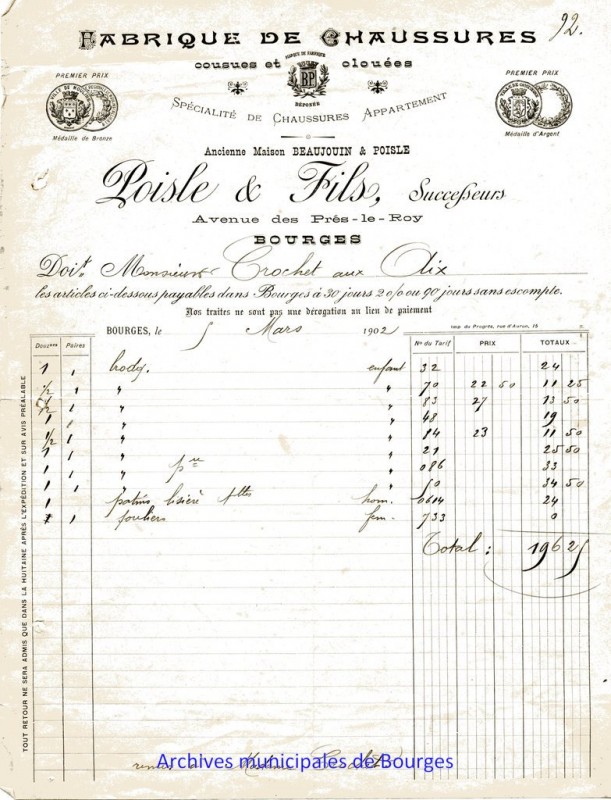 92.
FABRIQUE DE CHAUSSURES
cousues et clouées
MARQUE DE FABRIQUE
BP
DÉPOSÉE
PREMIER PRIX
Médaille de Bronze
PREMIER PRIX
Médaille d'Argent
SPÉCIALITÉ DE CHAUSSURES APPARTEMENT
Ancienne Maison BEAUJOUIN & POISLE
Poisle & Fils, Successeurs
Avenue des Prés-le-Roy
BOURGES
Doit Monsieur Crochet aux Aix
les articles ci-dessous payables dans Bourges à 30 jours 2 o/o ou 90 jours sans escompte.
Nos traites ne sont pas une dérogation au lieu de paiement
BOURGES, le 5 Mars 1902
Imp. du Progrès, rue d'Auron, 15
Douz nes Paires N° du Tarif PRIX TOTAUX
1 1 enfant 32 24
1/2 1 " " 70 22 50 11 25
1/2 1 " " 83 27 13 50
1 1 " " 48 19
1/2 1 " " 84 23 11 50
1 1 " " 21 25 50
1 1 " " 086 33
1 1 " " 34 50
1 1 lisière hom. 0614 24
1 fem. 733 0
Total : 196 25
TOUT RETOUR NE SERA ADMIS QUE DANS LA HUITAINE APRÈS L'EXPÉDITION ET SUR AVIS PRÉALABLE
Archives municipales de Bourges